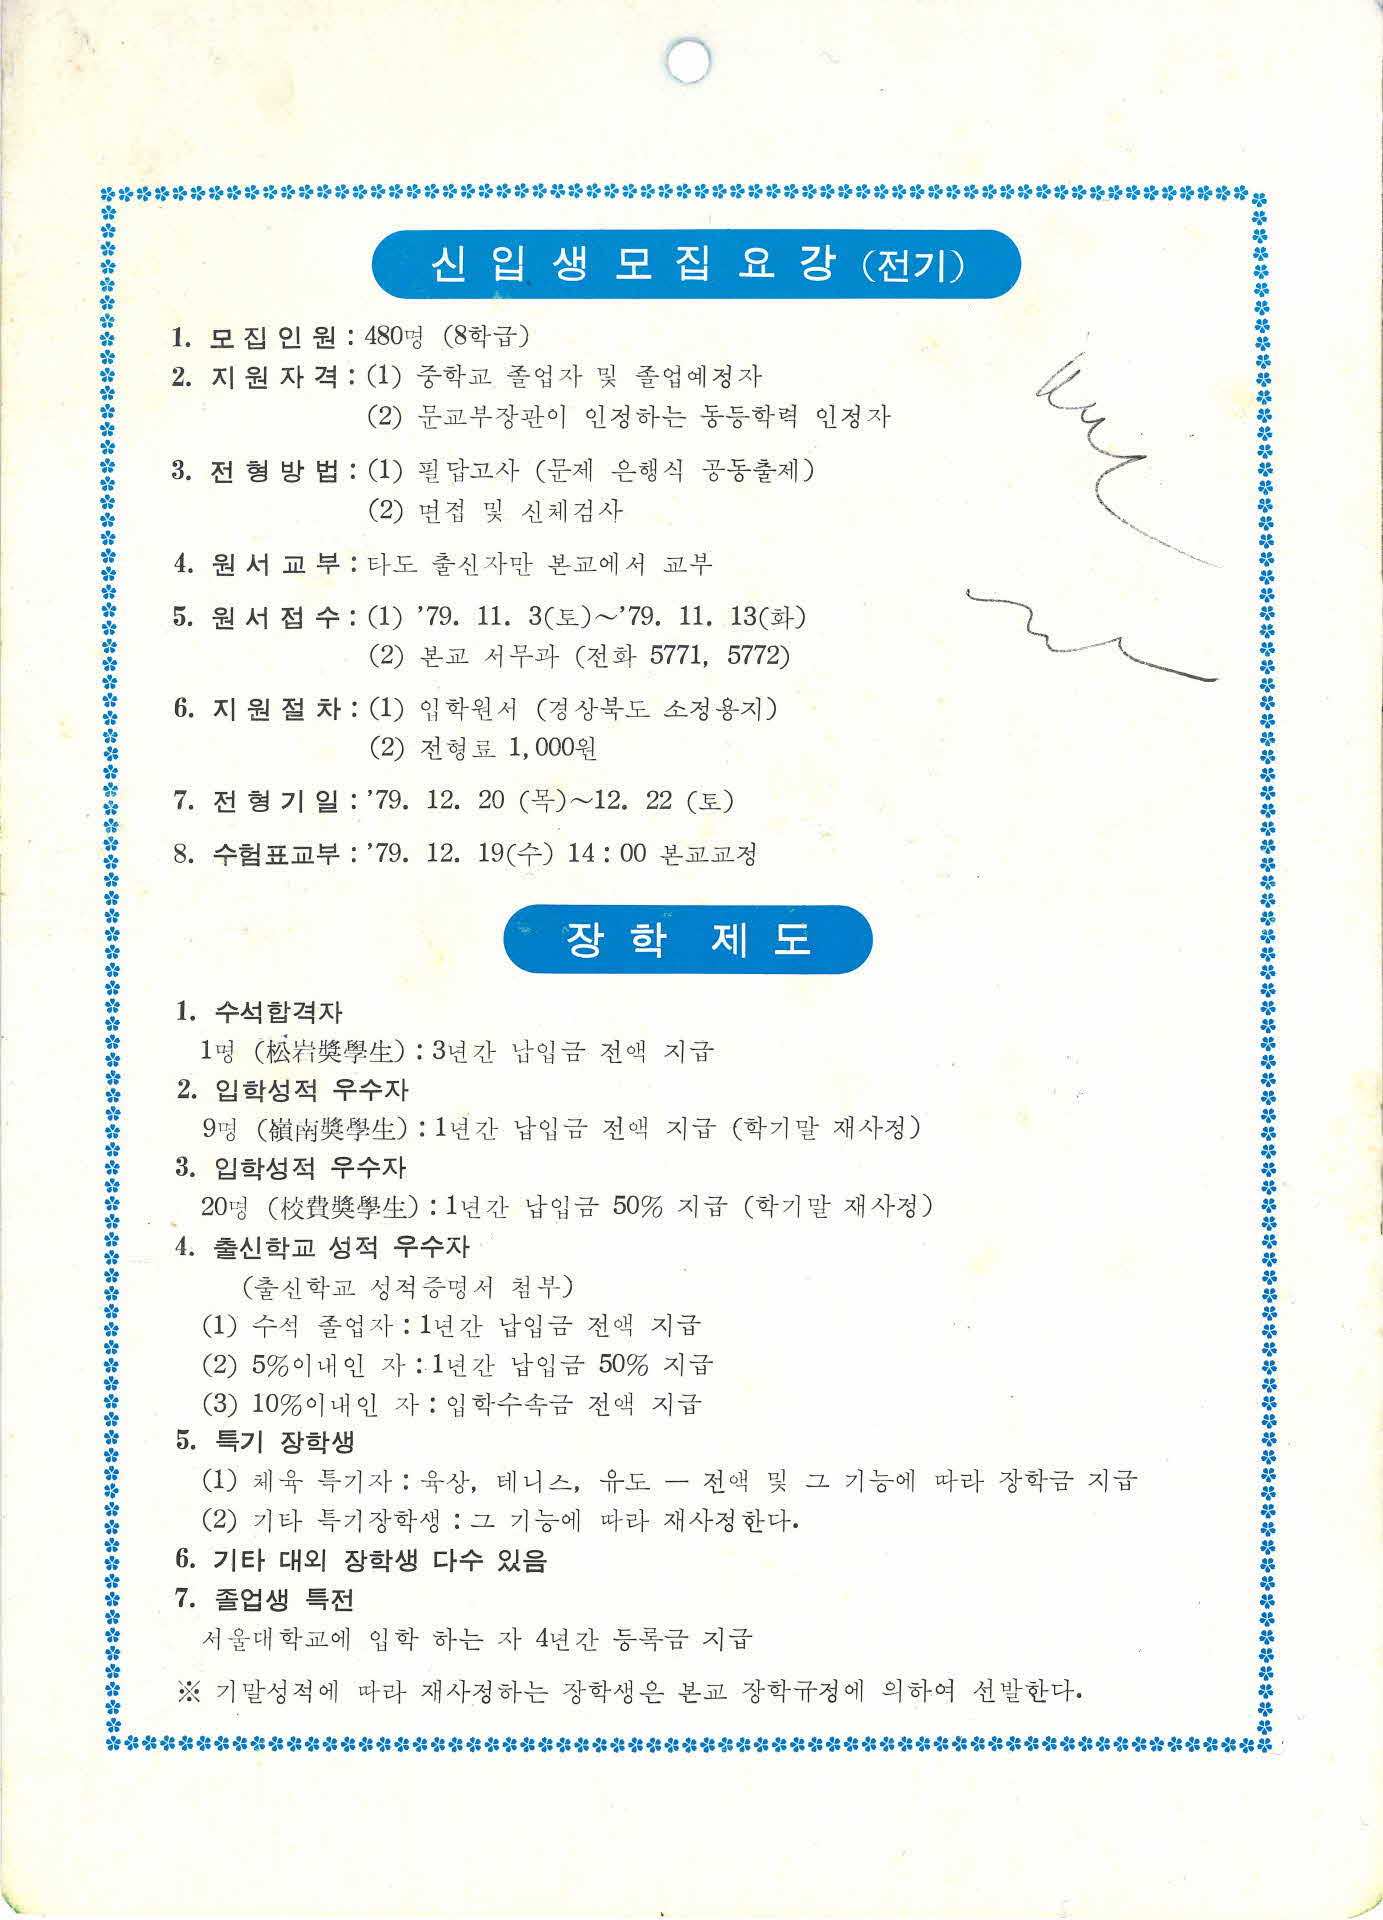 신입생모집요강 (전기)
1. 모집인원 : 480명 (8학급)
2. 지원자격 : (1) 중학교 졸업자 및 졸업예정자
(2) 문교부장관이 인정하는 동등학력 인정자
3. 전형방법 : (1) 필답고사 (문제 은행식 공동출제)
(2) 면접 및 신체검사
4. 원서교부 : 타도 출신자만 본교에서 교부
5. 원서접수 : (1) ’79. 11. 3(토)～’79. 11. 13(화)
(2) 본교 서무과 (전화 5771, 5772)
6. 지원절차 : (1) 입학원서 (경상북도 소정용지)
(2) 전형료 1,000원
7. 전형기일 : ’79. 12. 20 (목)～12. 22 (토)
8. 수험표교부 : ’79. 12. 19(수) 14 : 00 본교교정
장학 제도
1. 수석합격자
1명 (松岩奬學生) : 3년간 납입금 전액 지급
2. 입학성적 우수자
9명 (嶺南奬學生) : 1년간 납입금 전액 지급 (학기말 재사정)
3. 입학성적 우수자
20명 (校費奬學生) : 1년간 납입금 50% 지급 (학기말 재사정)
4. 출신학교 성적 우수자
(출신학교 성적증명서 첨부)
(1) 수석 졸업자 : 1년간 납입금 전액 지급
(2) 5%이내인 자 : 1년간 납입금 50% 지급
(3) 10%이내인 자 : 입학수속금 전액 지급
5. 특기 장학생
(1) 체육 특기자 : 육상, 테니스, 유도 ─ 전액 및 그 기능에 따라 장학금 지급
(2) 기타 특기장학생 : 그 기능에 따라 재사정한다.
6. 기타 대외 장학생 다수 있음
7. 졸업생 특전
서울대학교에 입학 하는 자 4년간 등록금 지급
※ 기말성적에 따라 재사정하는 장학생은 본교 장학규정에 의하여 선발한다.